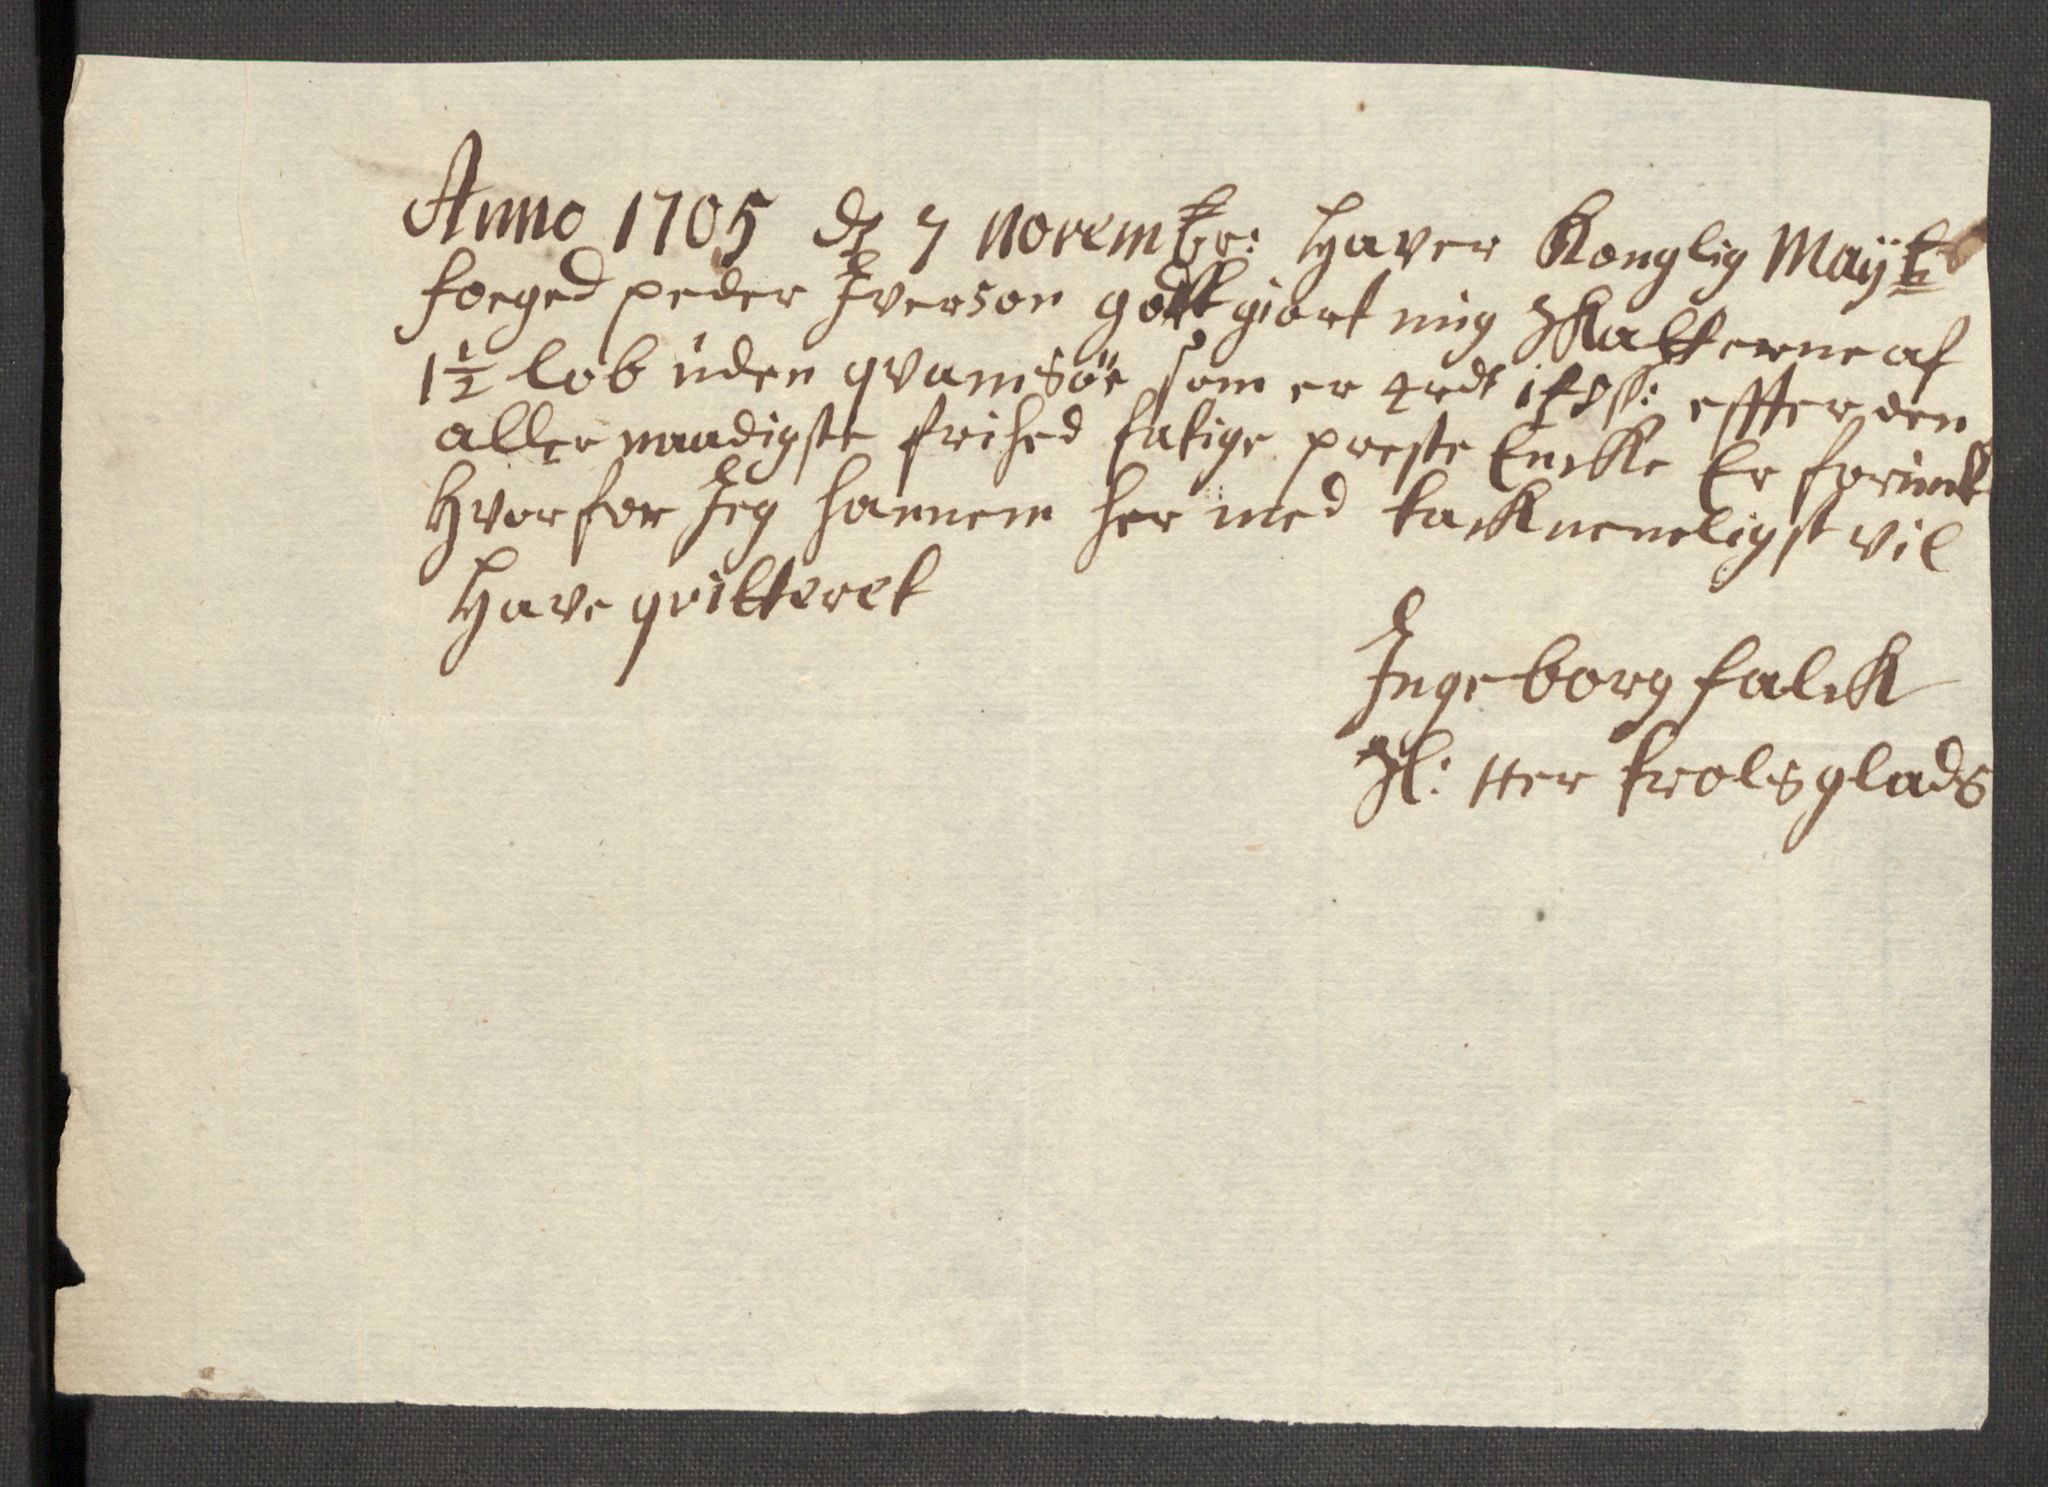 Anno 1705 d 7 Novembr: Haver Konglig May:tz
foeged peder Iverson gottgiort mig Skatterne af
1½ lob uden qvamsöe som er 4 rdr 1 ß: effter den
aller naadigste frihed fatige preste Encke Er forundt
Hvorfor Jeg hannem her med tackneneligst vil
Have qvitteret
Ingeborg falck
Sl: Her trolsglads